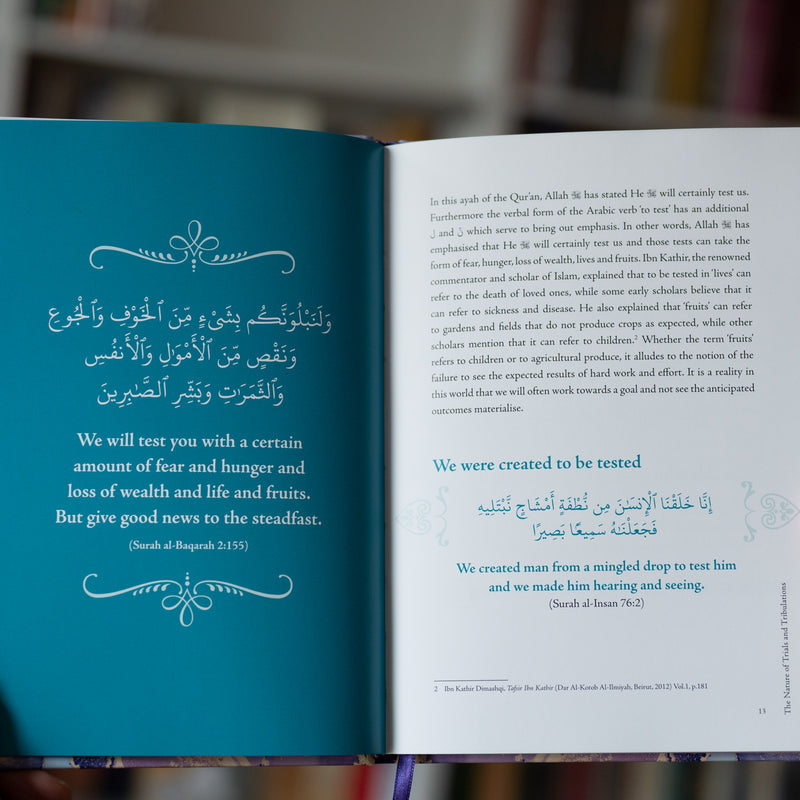 وَلَنَبْلُوَنَّكُم بِشَىْءٍ مِّنَ ٱلْخَوْفِ وَٱلْجُوعِ
وَنَقْصٍ مِّنَ ٱلْأَمْوَٰلِ وَٱلْأَنفُسِ
وَٱلثَّمَرَٰتِ وَبَشِّرِ ٱلصَّٰبِرِينَ
We will test you with a certain
amount of fear and hunger and
loss of wealth and life and fruits.
But give good news to the steadfast.
(Surah al-Baqarah 2:155)
In this ayah of the Qur'an, Allah ﷻ has stated He ﷻ will certainly test us.
Furthermore the verbal form of the Arabic verb 'to test' has an additional
ل and نّ which serve to bring out emphasis. In other words, Allah ﷻ has
emphasised that He ﷻ will certainly test us and those tests can take the
form of fear, hunger, loss of wealth, lives and fruits. Ibn Kathir, the renowned
commentator and scholar of Islam, explained that to be tested in 'lives' can
refer to the death of loved ones, while some early scholars believe that it
can refer to sickness and disease. He also explained that 'fruits' can refer
to gardens and fields that do not produce crops as expected, while other
scholars mention that it can refer to children.2 Whether the term 'fruits'
refers to children or to agricultural produce, it alludes to the notion of the
failure to see the expected results of hard work and effort. It is a reality in
this world that we will often work towards a goal and not see the anticipated
outcomes materialise.
We were created to be tested
إِنَّا خَلَقْنَا ٱلْإِنسَٰنَ مِن نُّطْفَةٍ أَمْشَاجٍ نَّبْتَلِيهِ
فَجَعَلْنَٰهُ سَمِيعًۢا بَصِيرًا
We created man from a mingled drop to test him
and we made him hearing and seeing.
(Surah al-Insan 76:2)
2 Ibn Kathir Dimashqi, Tafsir Ibn Kathir (Dar Al-Kotob Al-Ilmiyah, Beirut, 2012) Vol.1, p.181
13
The Nature of Trials and Tribulations